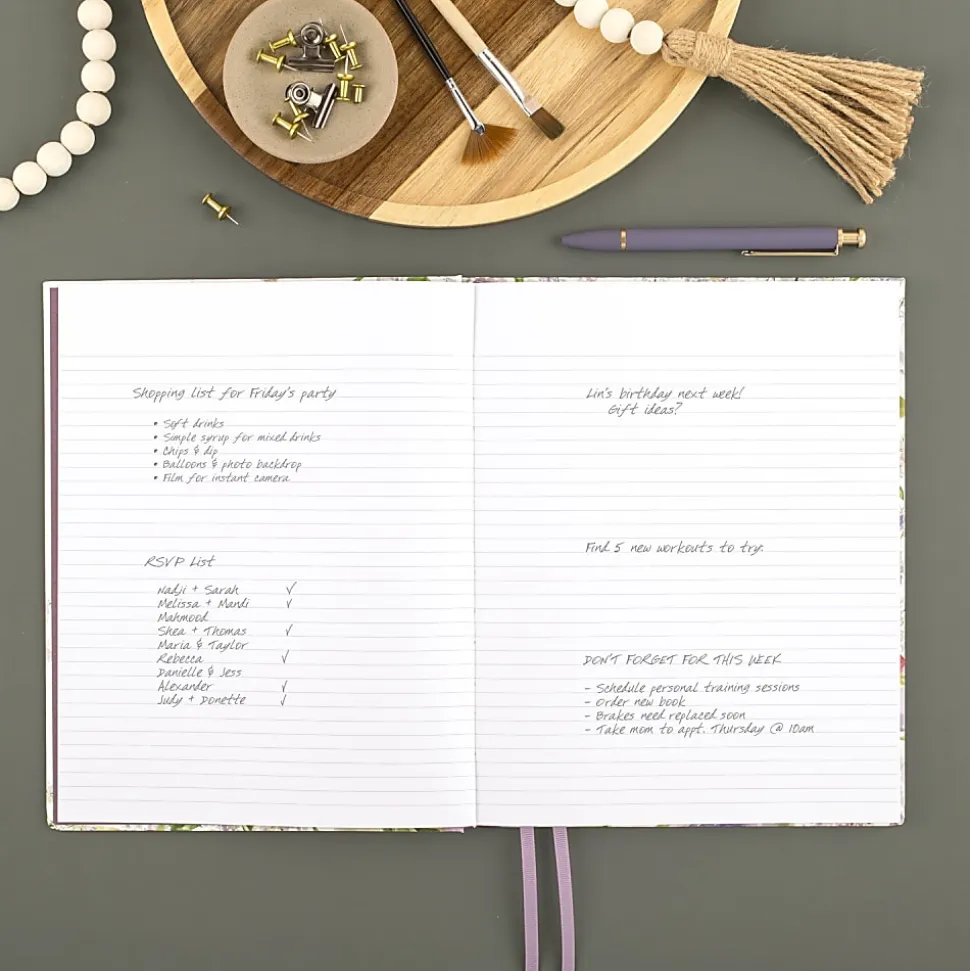 Shopping list for Friday's party
• Soft drinks
• Simple syrup for mixed drinks
• Chips & dip
• Balloons & photo backdrop
• Film for instant camera
RSVP List
Nadji + Sarah ✓
Melissa + Mandi ✓
Mahmood
Shea + Thomas ✓
Maria & Taylor
Rebecca ✓
Danielle & Jess
Alexander ✓
Judy + Donette ✓
Lin's birthday next week!
Gift ideas?
Find 5 new workouts to try.
DON'T FORGET FOR THIS WEEK
- Schedule personal training sessions
- Order new book
- Brakes need replaced soon
- Take mom to appt. Thursday @ 10am